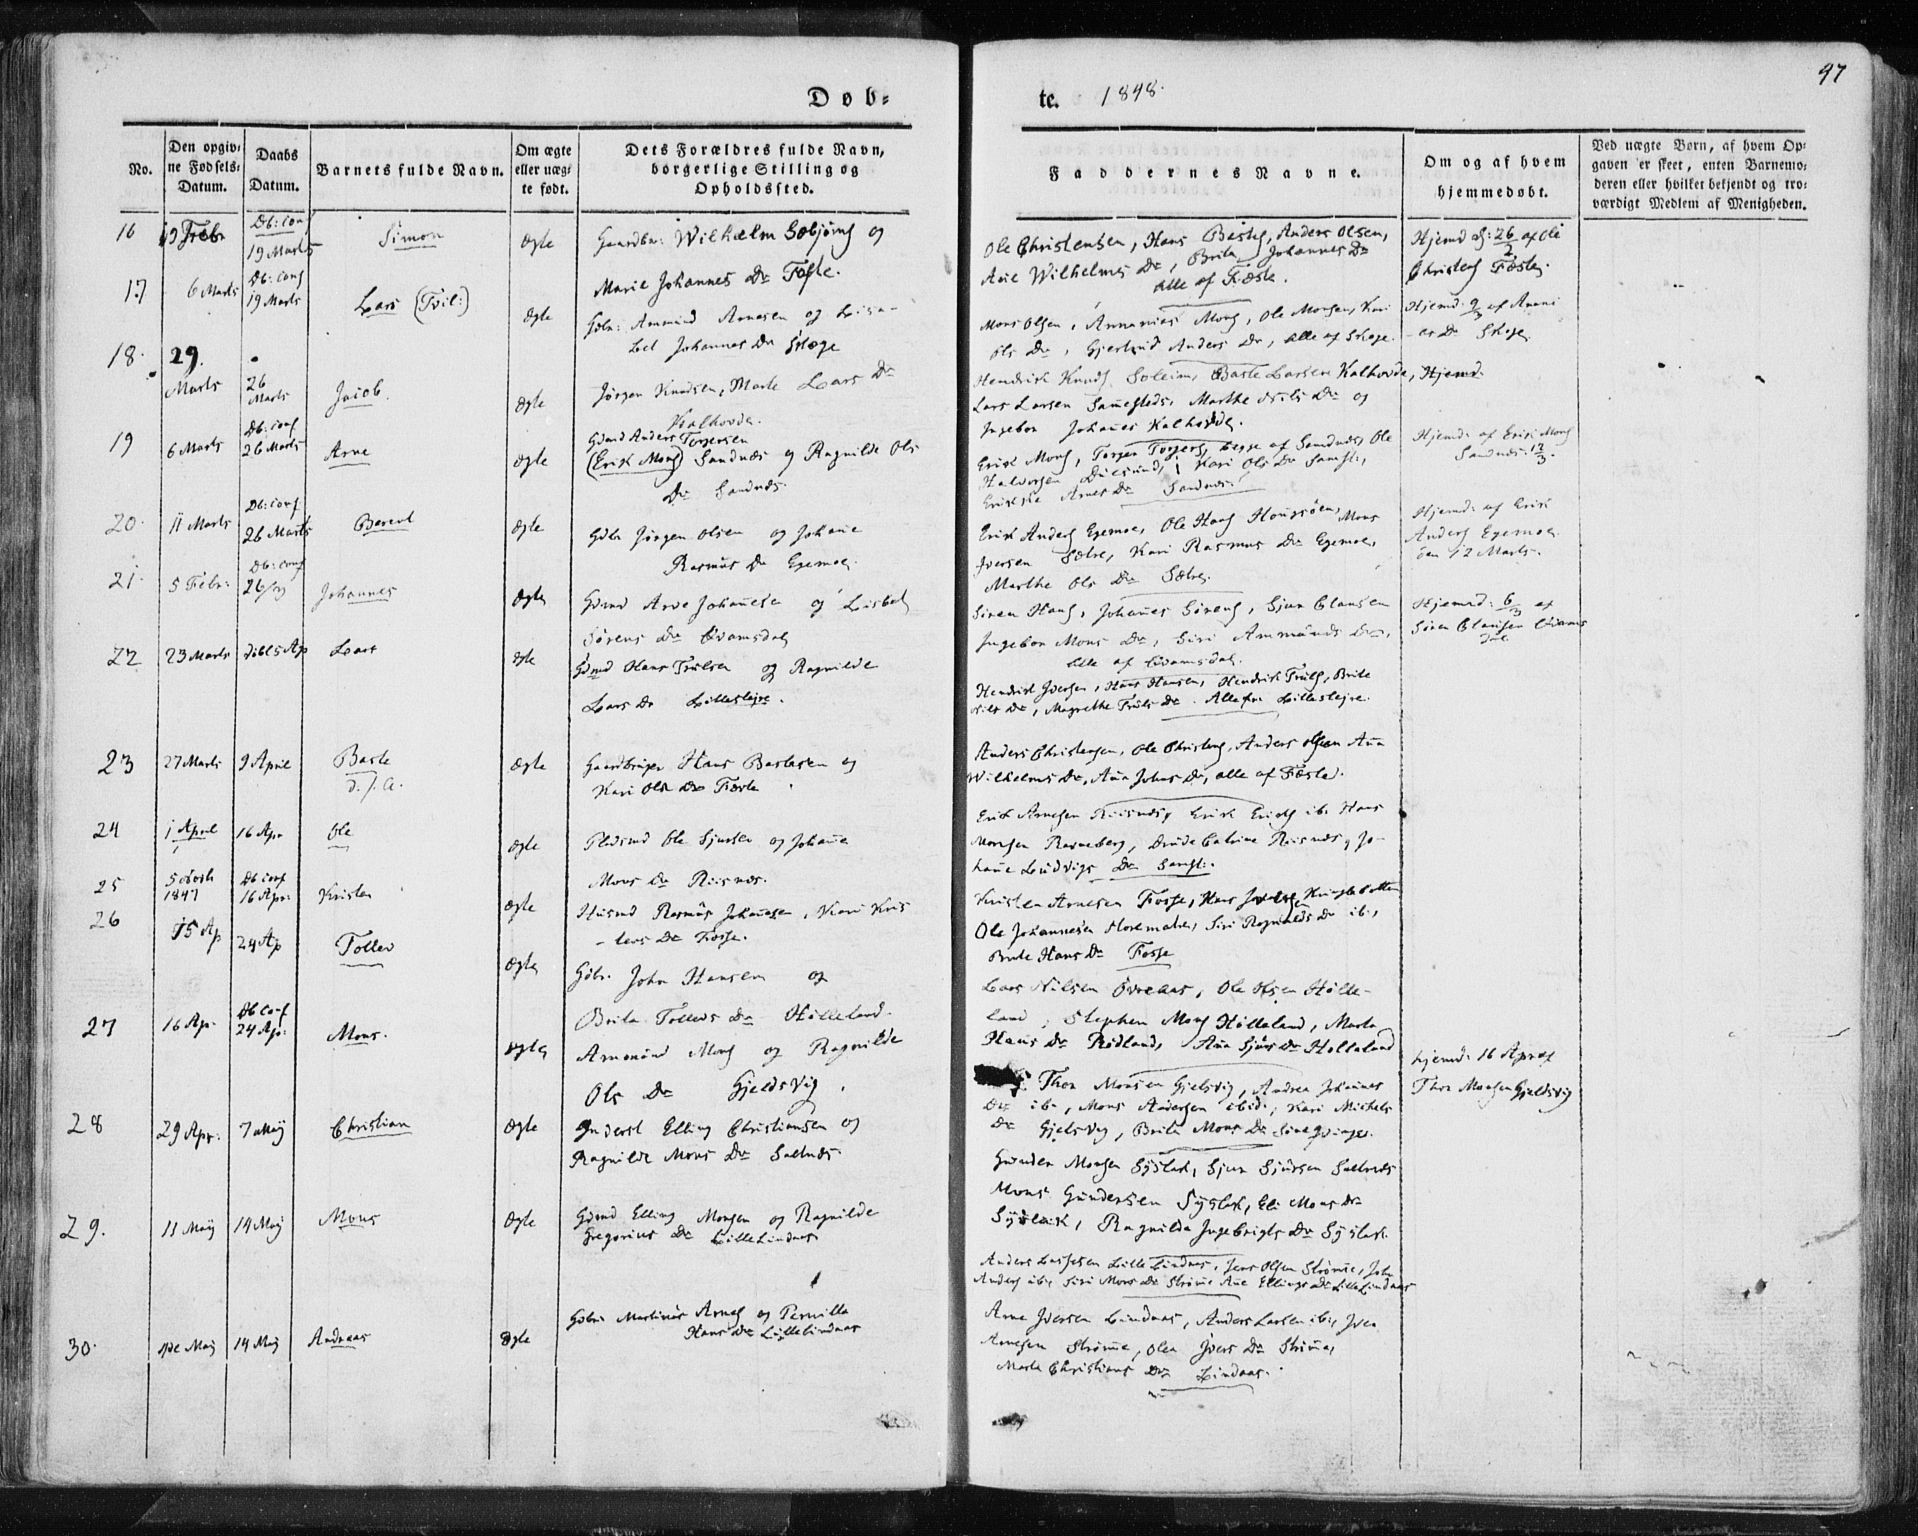 Døb-
te. 1848.
97
No.
Den opgiv-
ne Fødsels-
Datum.
Daabs
Datum.
Barnets fulde Navn.
Om ægte
eller uæg-
te født.
Dets Forældres fulde Navn,
borgerlige Stilling og
Opholdssted.
Faddernes Navne.
Om og af hvem
hjemmedøbt.
Ved uægte Børn, af hvem Op-
gaven er skeet, enten Barnemo-
deren eller hvilket bekjendt og tro-
værdigt Medlem af Menigheden.
16 Febr Db: conf
19 Marts Simon Ægte Gaardbr: Wilhælm Sebjörng og
Marie Johannes Dr Fæste.
Ole Christensen, Hans Bastes, Anders Olsen,
Ane Wilhelms Dr, Brita Johannes Dr
alle af Fæste.
Hjemd: 26/2 af Ole
Christens Fæste.
17 6 Marts Db: conf
19 Marts Lars (Tvil:) Ægte Gbr: Ammund Arnesen og Lisa-
bet Johannes Dr Skoge
Mons Olsen, Annanias Mons, Ole Monsen, Kari
Ols Dr, Gjertrud Anders Dr, alle af Skoge.
Hjemd: 9/3 af Anani
as Dr Skoge
18. 29.
Marts 26
Marts Jacob. Ægte Jörgen Knudsen, Marte Lars Dr
Kalhovde.
Hendrik Knuds Soleim, Baste Larsen Kalhovde, Hjemd.
Lars Larsen Samesteds, Marthe Nils Dr og
Ingebor Johanes Kalhovde.
19 6 Marts Db: conf
26 Marts Arne Ægte Gdmd Anders Torgersen
(Erik Mons) Sandnæs og Ragnilde Ols
Dr Sandnæs.
Erik Mons, Torger Torgers, begge af Sandnæs, Ole
Halvorsen Duesund, Kari Ols Dr Samst:,
Arnes Dr Sandnæs.
Hjemd: af Erik Mons
Sandnæs 12/3.
20. 11 Marts Db: conf
26 Marts Berent Ægte Gdbr Jörgen Olsen og Johane
Rasmus Dr Egemoe.
Erik Anders Egemoe, Ole Hans Hougsöen, Mons
Iversen Sætre, Kari Rasmus Dr Egemoe,
Marthe Ols Dr Sætre.
Hjemd: af Erik
Anders Egemoe
den 12 Marts.
21. 5 Febr: Db: conf
26/ Johannes Ægte Gdmd Arve Johannesen og Lisbet
Sörens Dr Qvamsdal
Sören Hans, Johanes Sörens, Sjur Clausen
Ingebor Mons Dr, Siri Ammunds Dr,
alle af Qvamsdal.
Hjemd: 6/3 af
Sören Clausen Qvams
dal
22 23 Marts Lars Ægte Gdmd Hans Trulsen og Ragnilde
Lars Dr Lilleslejre.
Hendrik Iversen, Hans Hansen, Hendrik Truls, Brite
Nils Dr, Magrethe Truls Dr. Alle fra Lilleslejre.
23 27 Marts 9 April Baste
d. f. a. Ægte Gaardbruger Hans Bastesen og
Kari Ols Dr Fæste.
Anders Christensen, Ole Christens, Anders Olsen Ana
Wilhelms Dr, Ana Johans Dr, alle af Fæste.
24 1 April 16 Apr Ole Ægte Pladsmd Ole Sjursen og Johane
Mons Dr Risnæs.
Erik Arnesen Riisnæs, Erik Eriks ib. Hans
Monsen Ramneberg, Drude Catrine Riisnæs, Jo-
hane Ludvigs Dr Samst:.
25 5 Novb
1847 Db conf
16 Apr: Kristen Ægte Huusmd Rasmus Johanesen, Kari Kris
-tens Dr Fosse.
Kristen Arnesen Fosse, Hans
Ole Johannesen, Siri Rognalds Dr ib.,
Brite Hans Dr Fosse
26 15 Ap 24 Ap Tollev Ægte Gdbr. John Hansen og
Brita Tollevs Dr Hilleland.
Lars Nilsen Övreaas, Ole Olsen Hille-
land, Stephen Mons Hilleland, Marta
Hans Dr Rödland, Ana Sjurs Dr Hilleland
27 16 Ap. Db conf
24 Ap: Mons. Ægte Ammund Mons og Ragnilde
Ols Dr Gjeldsvig.
Thor Monsen Gjelsvig, Andrea Johannes
Dr ib., Mons Andersen ibid., Kari Michels
Dr Gjelsvig, Brita Mons Dr
hjemd: 16 Apr af
Thor Monsen Gjeldsvig
28 29 Apr: 7 Maij Christian Ægte Inderst Elling Christiansen og
Ragnilde Mons Dr Saltnæs.
Gunder Monsen Sÿslak, Sjur Sjursen Saltnæs
Mons Gundersen Sÿslak, Eli Mons Dr
Sÿslak, Ragnilda Ingebrigts Dr Sÿslak.
29. 11 Maij 14 Maij Mons Ægte Gdmd Elling Monsen og Ragnilde
Gregorius Dr Lille Lindaas
Anders Lassesen Lille Lindaas, Jens Olsen Strömme, John
Anders ib, Siri Mons Dr Strömme Ane Ellings Dr Lille Lindaas
30. Maij 14 Maij Andreas Ægte Gdbr: Martinus Arnes og Pernilla
Hans Dr Lille Lindaas
Arne Iversen Lindaas, Anders Larsen ib, Iver
Arnesen Strömme, Olea Ivers Dr Strömme,
Marte Christians Dr Lindaas.